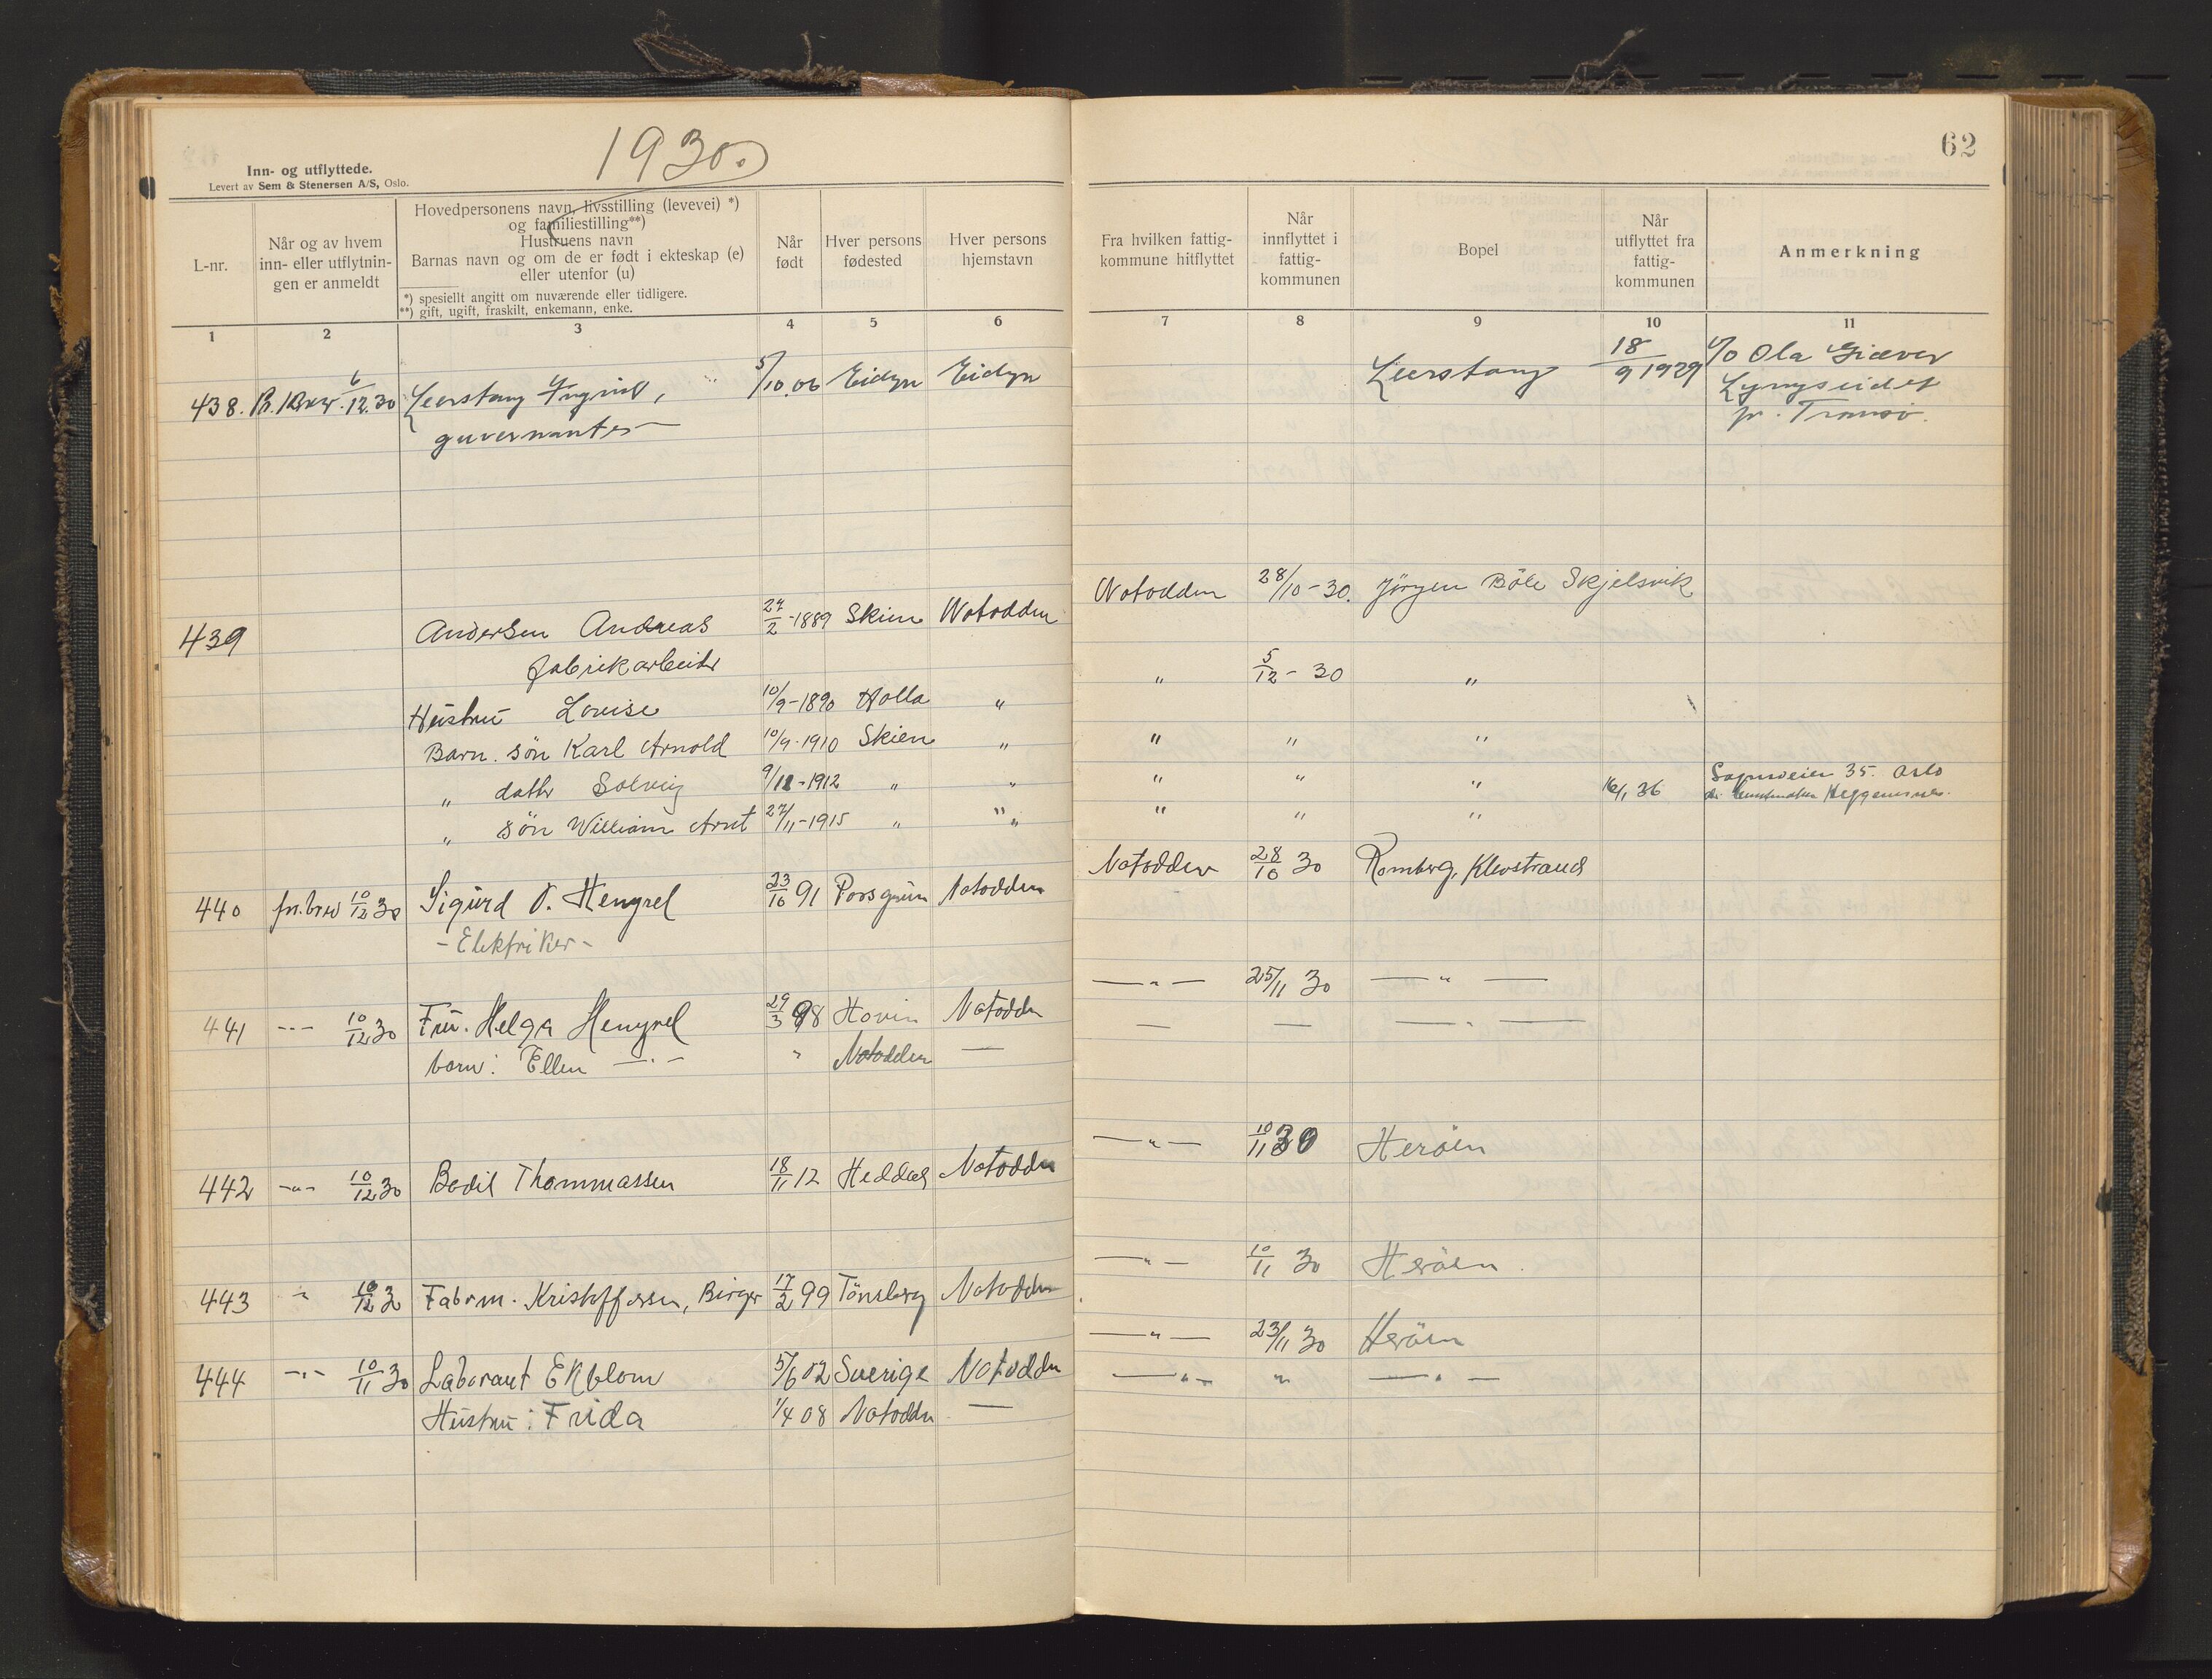 1930.
62
Inn- og utflyttede.
Levert av Sem & Stenersen A/S, Oslo.
L-nr.
Når og av hvem
inn- eller utflytnin-
gen er anmeldt
Hovedpersonens navn, livsstilling (levevei) *)
og familiestilling**)
Hustruens navn
Barnas navn og om de er født i ekteskap (e)
eller utenfor (u)
*) spesiellt angitt om nuværende eller tidligere.
**) gift, ugift, fraskilt, enkemann, enke.
Når
født
Hver persons
fødested
Hver persons
hjemstavn
Fra hvilken fattig-
kommune hitflyttet
Når
innflyttet i
fattig-
kommunen
Bopel
Når
utflyttet fra
fattig-
kommunen
Anmerkning
1 2 3 4 5 6 7 8 9 10 11
438. Pr. brev 6/12.30 Leerstang Ingrid, 5/10.06 Eidgn Eidgn Leerstang 18/9 1929 c/o Ola Giæver
guvernante Lyngseidet
pr. Tromsø.
439 Andersen Andreas 24/2-1889 Skien Notodden Notodden 28/10-30. Jörgen Böle Skjelsvik
fabrikarbeider
Hustru Lovise 10/9-1890 Holla " " 5/12-30 "
Barn. sön Karl Arnold 10/9-1910 Skien " " " "
" datter Solveig 9/12-1912 " " " " " 16/1 36 Sognsveien 35. Oslo
" sön William Arnt 27/11-1915 " " " " "
440 pr. brev 10/12 30 Sigurd O. Hengrel 23/10 91 Porsgrun Notodden Notodden 28/10 30 Romberg, Klevstrand
- Elektriker -
441 -"- 10/12 30 Fru. Helga Hengrel 29/3 98 Hovin Notodden —"— 25/11 30 —"—
barn: Ellen —"— " Notodden — — — —"—
442 -"- 10/12 30 Bodil Thommassen 18/11 12 Heddal Notodden —"— 10/11 30 Heröen
443 " 10/12 30 Fabrm. Kristoffersen, Birger 17/2 99 Tönsberg Notodden —"— 10/11 30 Heröen.
444 -"- 10/11 30 Laborant Ekblom 5/6 02 Sverige Notodden —"— 23/11 30 Heröen
Hustru: Frida 1/4 08 Notodden — —"— " —"—